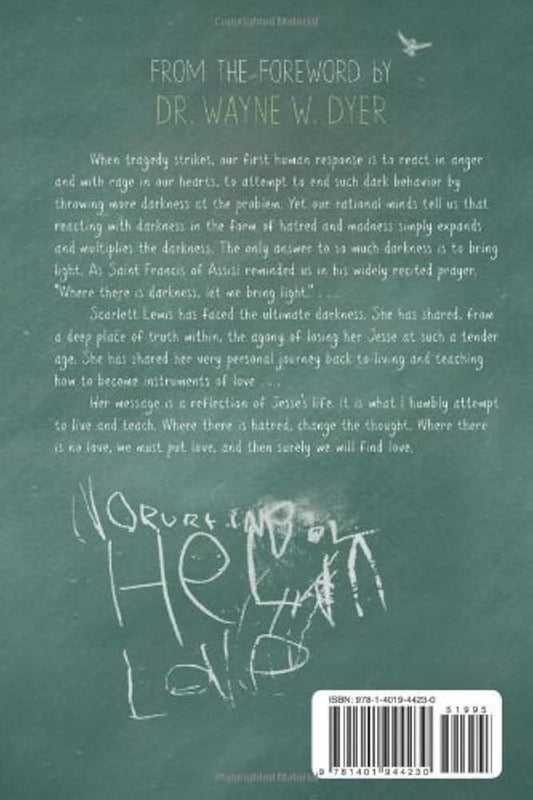 Copyrighted Material
FROM THE FOREWORD by
DR. WAYNE W. DYER
When tragedy strikes, our first human response is to react in anger
and with rage in our hearts, to attempt to end such dark behavior by
throwing more darkness at the problem. Yet our rational minds tell us that
reacting with darkness in the form of hatred and madness simply expands
and multiplies the darkness. The only answer to so much darkness is to bring
light. As Saint Francis of Assisi reminded us in his widely recited prayer,
"Where there is darkness, let me bring light." . . .
Scarlett Lewis has faced the ultimate darkness. She has shared, from
a deep place of truth within, the agony of losing her Jesse at such a tender
age. She has shared her very personal journey back to living and teaching
how to become instruments of love . . .
Her message is a reflection of Jesse's life. It is what I humbly attempt
to live and teach. Where there is hatred, change the thought. Where there
is no love, we must put love, and then surely we will find love.
ISBN: 978-1-4019-4423-0
51995
9 781401 944230
Copyrighted Material